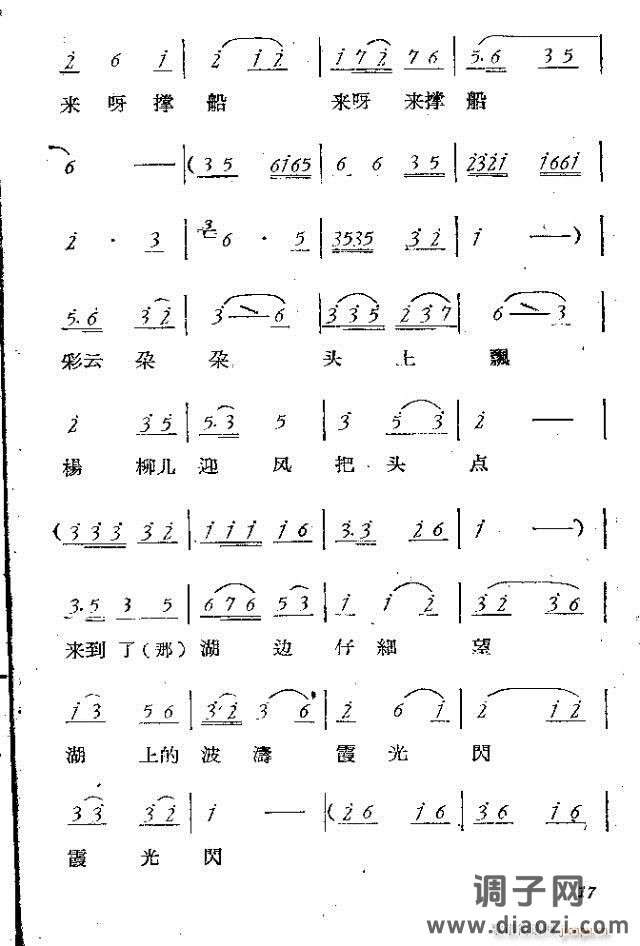 2̇ 6 1̇ | 2̇ 1̇2̇ | 1̇72̇ 76 | 5.6 35 |
来呀撑船 来呀来撑船
6 — | (35 61̇65 | 6 6 35 | 2̇3̇2̇1̇ 1̇661̇ |
2̇ · 3 | 6 · 5 | 3535 3̇2̇ | 1̇ — )
5.6 3̇2̇ | 3̇ 6 | 3̇3̇5 2̇3̇7 | 6 3 |
彩云朵朵 头上飄
2̇ 3̇5 | 5.3̇ 5 | 3̇ 5 3̇ | 2̇ — |
楊柳儿迎风把头点
(3̇3̇3̇ 3̇2̇ | 1̇1̇1̇ 1̇6 | 3̇.3̇ 2̇6 | 1̇ — ) |
3.5 3 5 | 676 53̇ | 1̇ 1̇ 2̇ | 3̇2̇ 3̇6 |
来到了(那)湖边仔細望
1̇3̇ 56 | 3̇·2̇ 3 6 | 2̇ 6 1̇ | 2̇ 1̇2̇ |
湖上的波濤霞光閃
3̇3̇ 3̇2̇ | 1̇ — | (2̇6 1̇6 | 3̇6 1̇6 |
霞光閃
17
调子网
www.diaozi.com